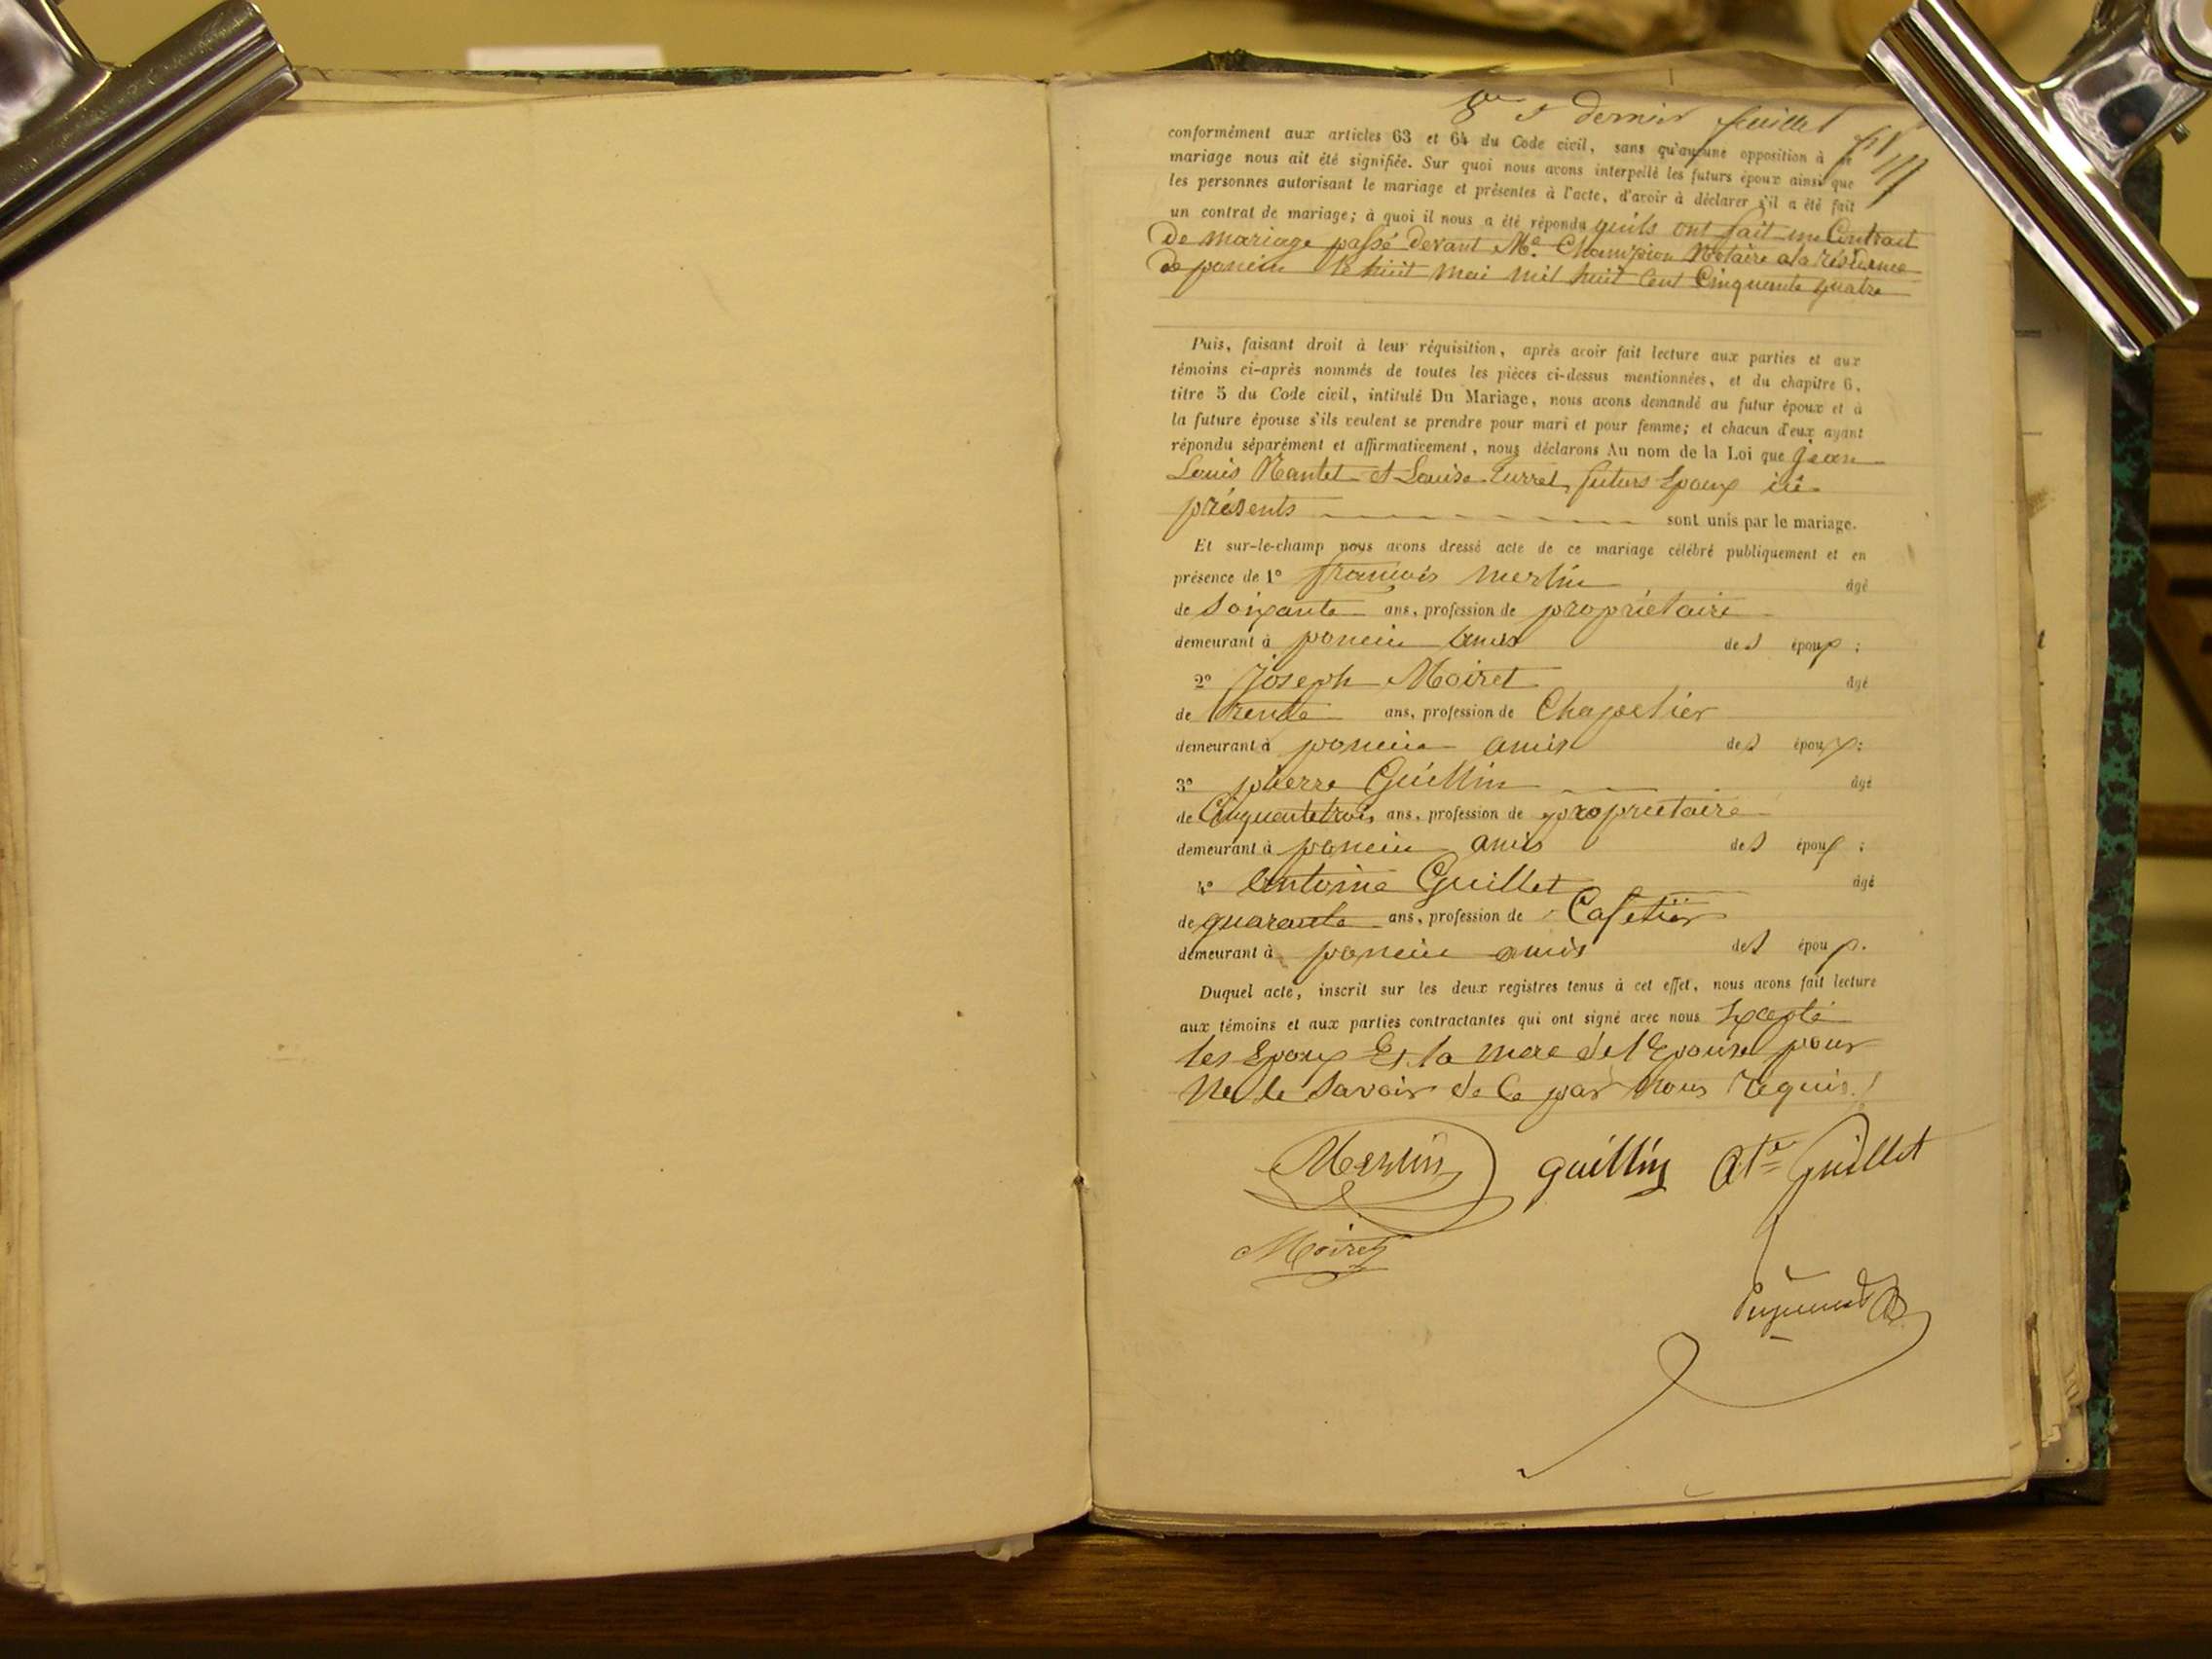 8me et dernier feuillet
conformément aux articles 63 et 64 du Code civil, sans qu'aucune opposition à ce
mariage nous ait été signifiée. Sur quoi nous avons interpellé les futurs époux ainsi que
les personnes autorisant le mariage et présentes à l'acte, d'avoir à déclarer s'il a été fait
un contrat de mariage; à quoi il nous a été répondu qu'ils ont fait un Contrait
De mariage passé devant Me. Champion Notaire a la résidence
de poncin le huit mai mil huit Cent Cinquante quatre
Puis, faisant droit à leur réquisition, après avoir fait lecture aux parties et aux
témoins ci-après nommés de toutes les pièces ci-dessus mentionnées, et du chapitre 6,
titre 5 du Code civil, intitulé Du Mariage, nous avons demandé au futur époux et à
la future épouse s'ils veulent se prendre pour mari et pour femme; et chacun d'eux ayant
répondu séparément et affirmativement, nous déclarons Au nom de la Loi que jean
Louis Nantet et Louise Curret, futurs Epoux ici
présents sont unis par le mariage.
Et sur-le-champ nous avons dressé acte de ce mariage célébré publiquement et en
présence de 1° francois merlin âgé
de Soixante ans, profession de propriétaire
demeurant à poncin amis des époux;
2° Joseph Moiret âgé
de trente ans, profession de Chapelier
demeurant à poncin amis des époux;
3° pierre Guillin âgé
de Cinquantetrois ans, profession de propriétaire
demeurant à poncin amis des époux;
4° Antoine Guillet âgé
de quarante ans, profession de Cafetier
demeurant à poncin amis des époux.
Duquel acte, inscrit sur les deux registres tenus à cet effet, nous avons fait lecture
aux témoins et aux parties contractantes qui ont signé avec nous Excepté
les Epoux Et la mere de l'Epouse pour
Ne le savoir de Ce par Nous requis.
Merlin guillin Ate guillet
Moiret